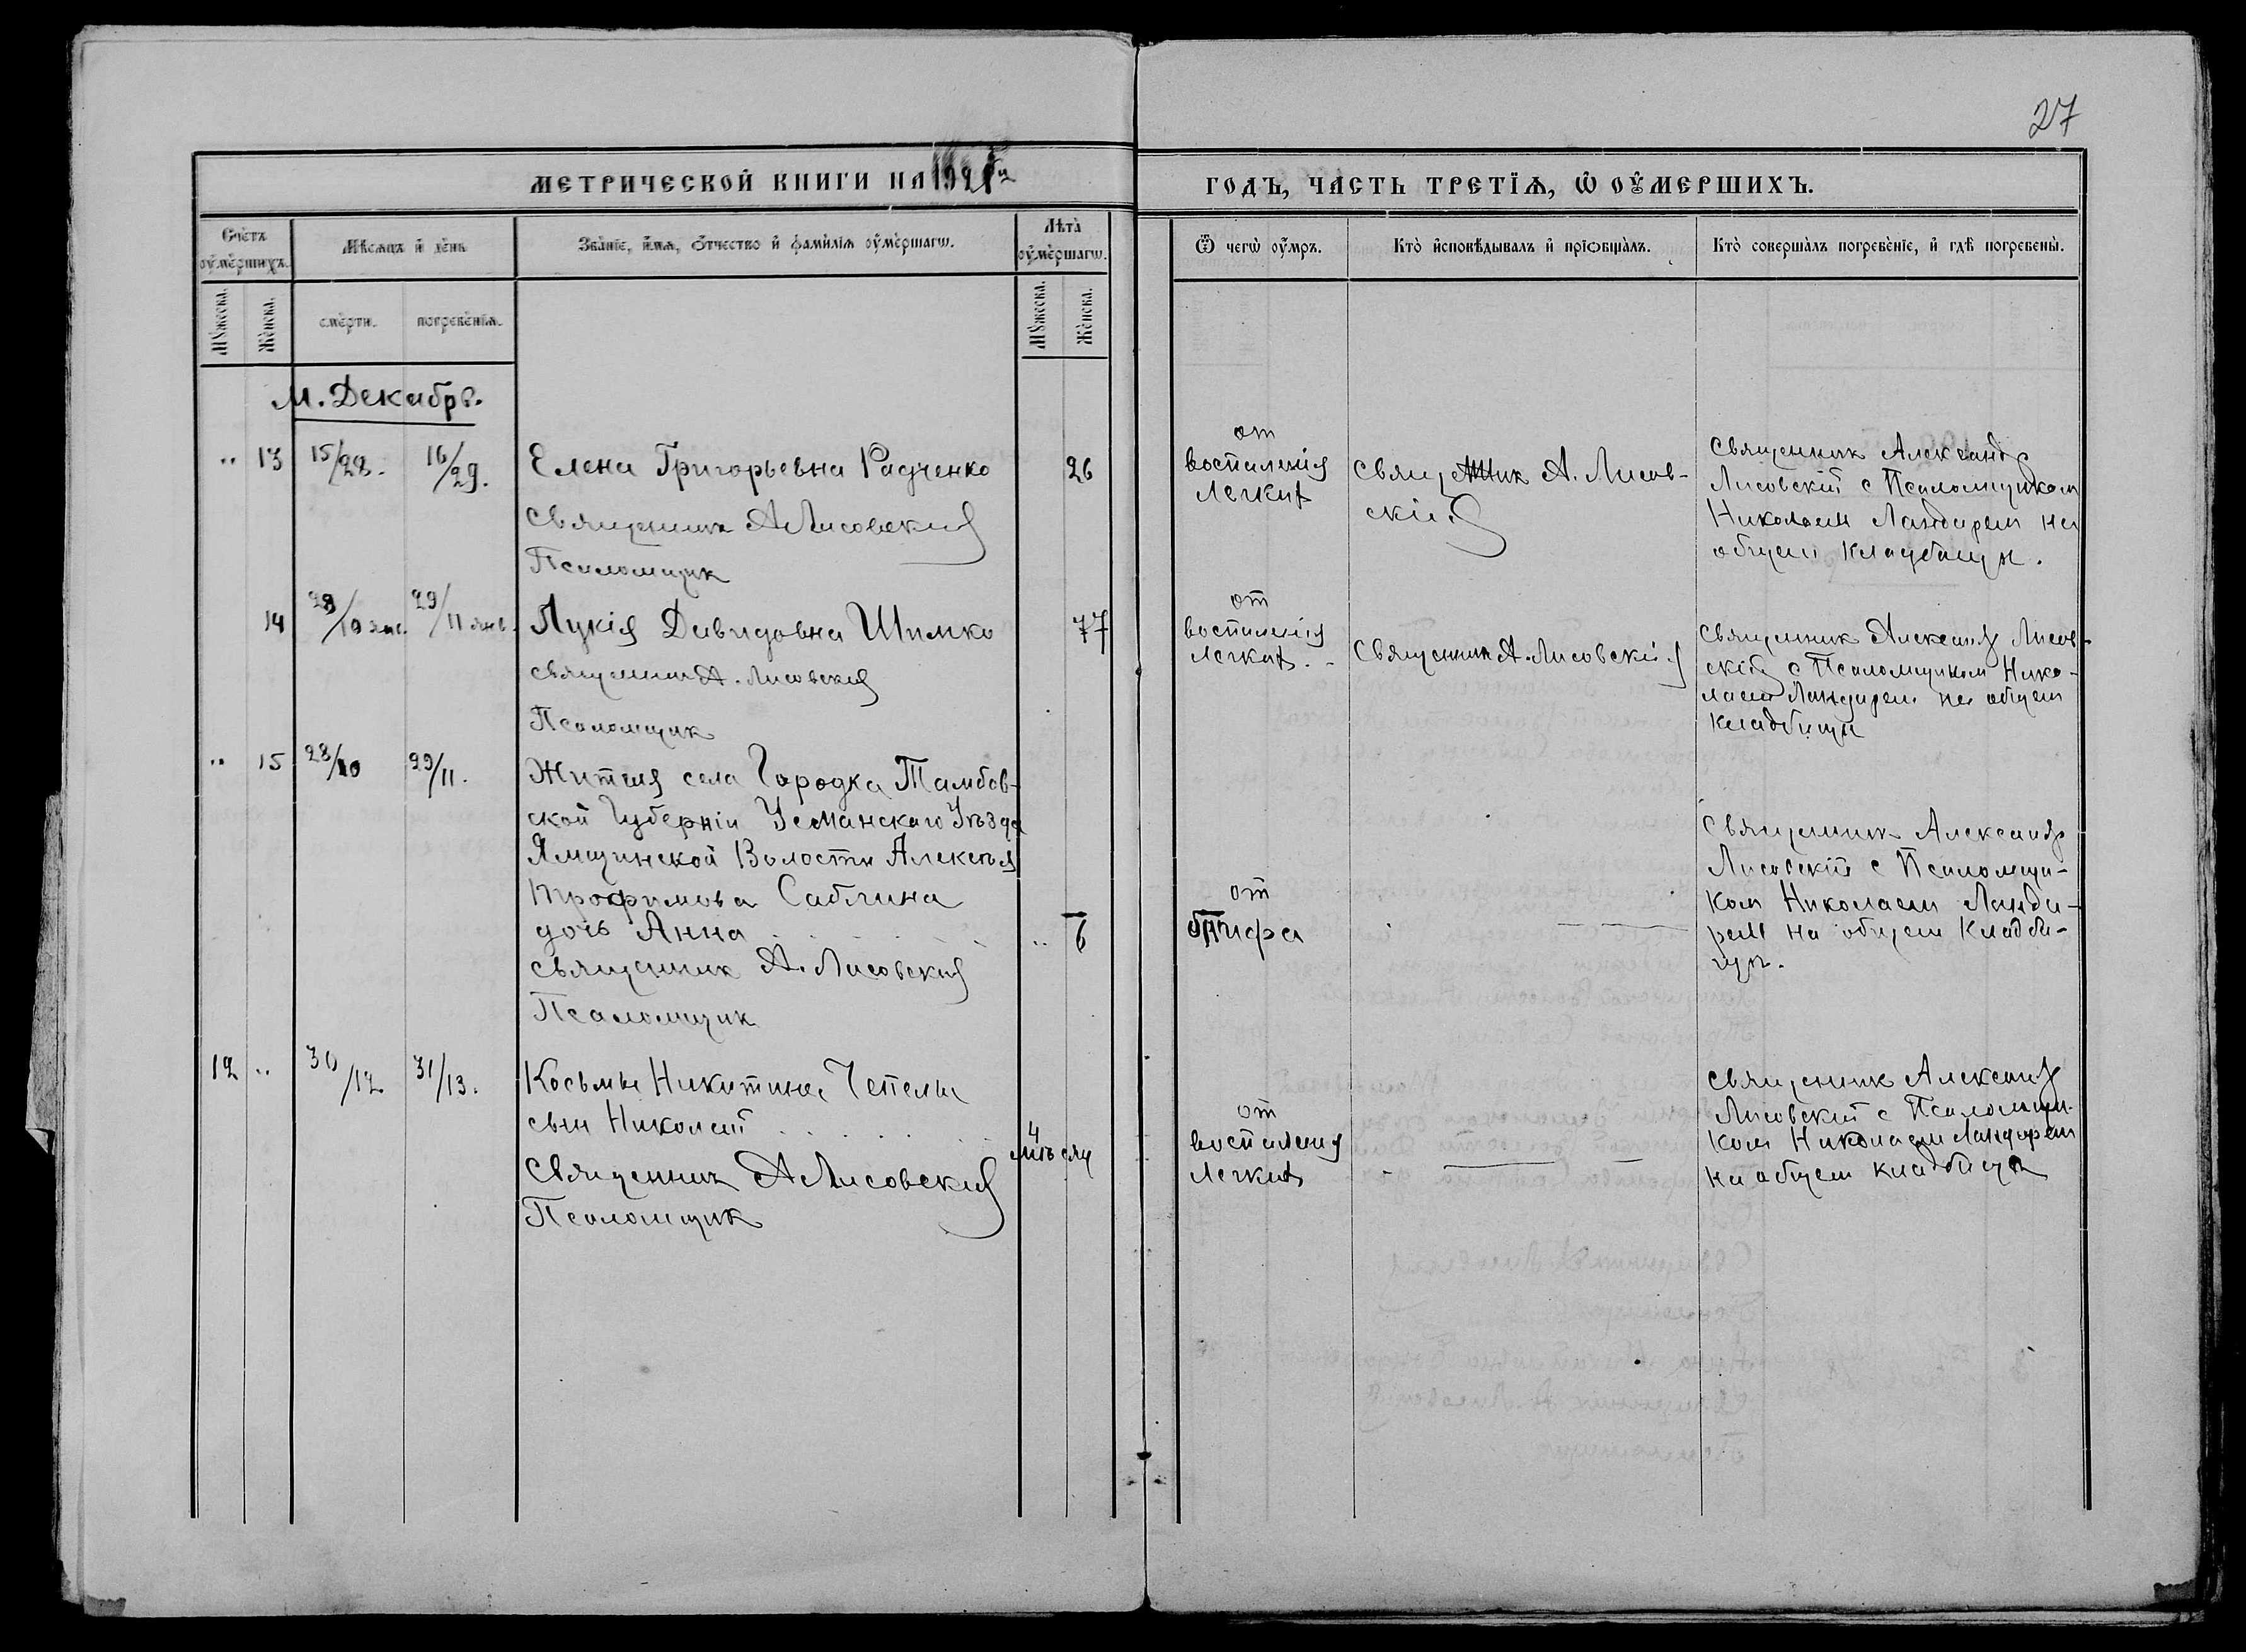 27
МЕТРИЧЕСКОЙ КНИГИ НА 1921 ГОДЪ, ЧАСТЬ ТРЕТІѦ, Ѡ ОУМЕРШИХЪ.
Счетъ оумершихъ.
Мѣсяцъ и день
Званіе, имя, отчество и фамилія оумершагѡ.
Лѣта оумершагѡ.
Ѿ чегѡ оумръ.
Кто исповѣдывалъ и прїѡбщалъ.
Кто совершалъ погребеніе, и гдѣ погребены.
Мꙋжеска.
Женска.
смерти.
погребенія.
Мꙋжеска.
Женска.
М. Декабрь.
" 13 15/28. 16/29.
Елена Григорьевна Радченко 26
Священник А Лисовский
Псаломщик
от
воспаления
легких
Священник А. Лисов-
скій
Священник Александр
Лисовскій с Псаломщиком
Николаем Ландирем на
общем кладбищѣ.
14 28/10 янв. 29/11 янв.
Лукія Давидовна Шимко 77
Священник А. Лисовский
Псаломщик
от
воспаления
легких.
Священник А. Лисовский
Священник Александр Лисов-
скій с Псаломщиком Нико-
лаем Ландирем на общем
кладбищѣ
" 15 28/10 29/11.
Жителя села Городка Тамбов-
ской Губерніи Усманскаго Уѣзда
Ямщинской Волости Алексѣя
Трофимова Саблина
дочь Анна " 6
Священник А. Лисовский
Псаломщик
от
тифа
Священник Александр
Лисовскій с Псаломщи-
ком Николаем Ланди-
рем на общем кладби-
щѣ.
12 " 30/12 31/13.
Косьмы Никитина Чепелы
сын Николай 4
мѣсяц
Священник А Лисовский
Псаломщик
от
воспаления
легких
Священник Александр
Лисовский с Псаломщи-
ком Николаем Ландирем
на общем кладбищѣ